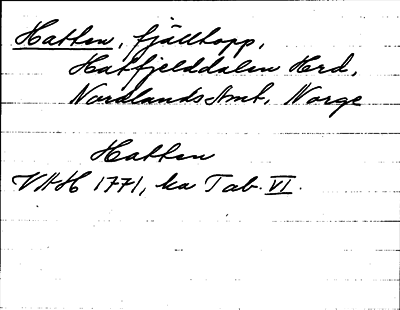 Hatten, fjälltopp,
Hatfjelddalen Hrd,
Nordlands Amt, Norge
Hatten
VAH 1771, ka Tab. VI.